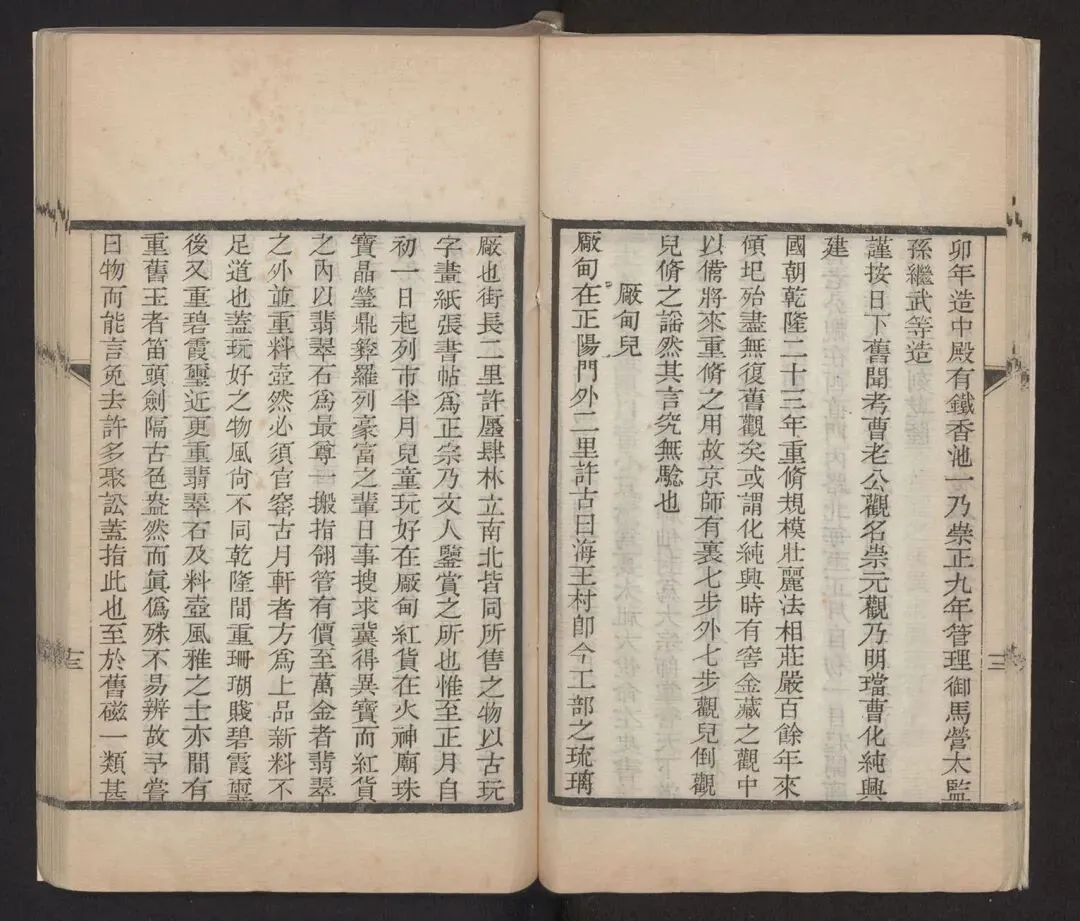 卯年造中殿有鐵香池一乃崇正九年管理御馬營太監
孫繼武等造
謹按日下舊聞考曹老公觀名崇元觀乃明璫曹化純興
建
國朝乾隆二十三年重脩規模壯麗法相莊嚴百餘年來
傾圯殆盡無復舊觀矣或謂化純興時有窖金藏之觀中
以備將來重脩之用故京師有裏七步外七步觀兒倒觀
兒脩之謡然其言究無驗也
廠甸兒
廠甸在正陽門外二里許古曰海王村卽今工部之琉璃
廠也街長二里許廛肆林立南北皆同所售之物以古玩
字畫紙張書帖爲正宗乃文人鑒賞之所也惟至正月自
初一日起列市半月兒童玩好在廠甸紅貨在火神廟珠
寶晶瑩鼎彝羅列豪富之輩日事搜求冀得異寶而紅貨
之內以翡翠石爲最尊一搬指翎管有價至萬金者翡翠
之外並重料壺然必須官窑古月軒者方爲上品新料不
足道也蓋玩好之物風尙不同乾隆間重珊瑚賤碧霞璽
後又重碧霞璽近更重翡翠石及料壺風雅之士亦間有
重舊玉者笛頭劍隔古色盎然而眞僞殊不易辨故予嘗
曰物而能言免去許多聚訟蓋指此也至於舊磁一類甚